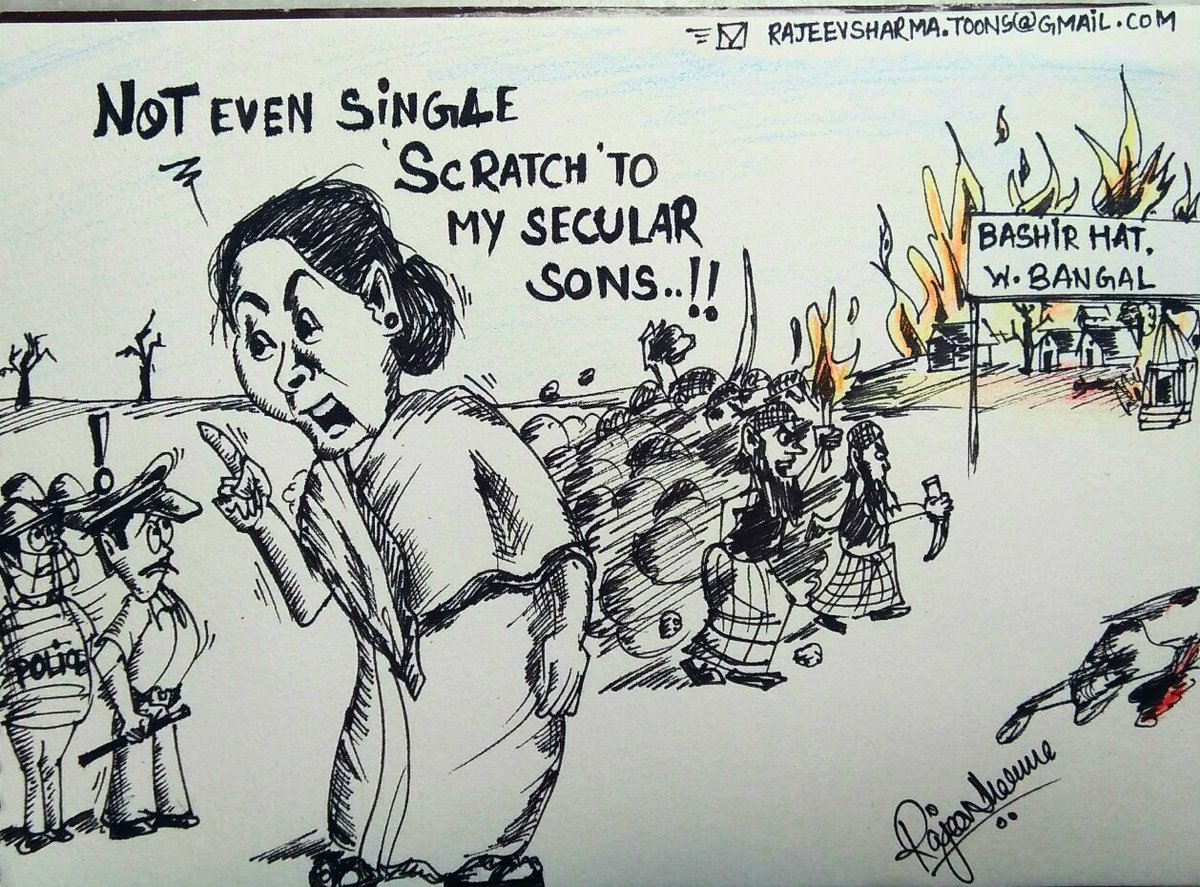 RAJEEVSHARMA.TOONS@GMAIL.COM
NOT EVEN SINGLE
'SCRATCH' TO
MY SECULAR
SONS..!!
BASHIR HAT.
W. BANGAL
!
POLICE
Rajeev Sharma